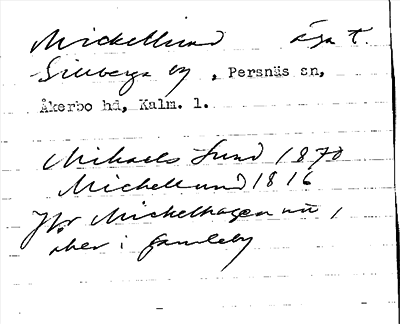 Mickelsund äga t.
Sillberga by, Persnäs sn,
Åkerbo hd, Kalm. l.
Mikaels Sund 1870
Mickelsund 1816
Jfr Mickelhagen
åker i Gamleby